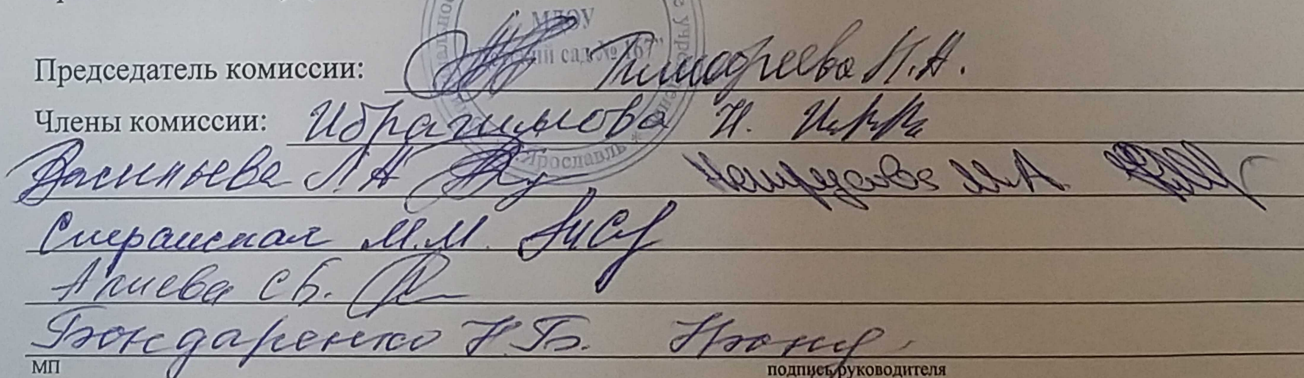 МДОУ
сад № 167"
Председатель комиссии: Тимофеева Н.А.
Члены комиссии: Ибрагимова Н.
Ярославль *
Васильева Л.А М.А.
Сперанская М.М.
Алиева С.Б.
Бондаренко Н.Б.
МП подпись руководителя